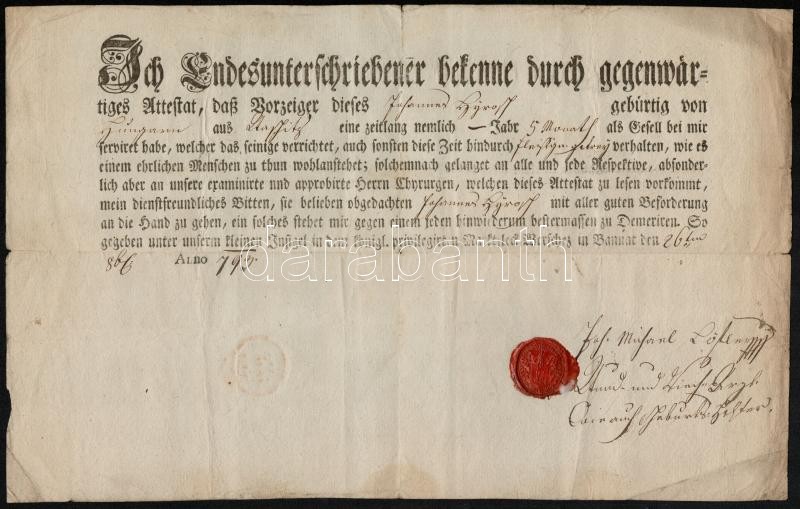 Ich Endesunterschriebener bekenne durch gegenwär-
tiges Attestat, daß Vorzeiger dieses Johannes gebürtig von
Hungarn aus eine zeitlang nemlich — Jahr 5 Monath als Gesell bei mir
serviret habe, welcher das seinige verrichtet, auch sonsten diese Zeit hindurch verhalten, wie es
einem ehrlichen Menschen zu thun wohlanstehet; solchemnach gelanget an alle und jede Respektive, absonder-
lich aber an unsere examinirte nnd approbirte Herrn Chyrurgen, welchen dieses Attestat zu lesen vorkommt,
mein dienstfreundliches Bitten, sie belieben obgedachten Johannes mit aller guten Beförderung
an die Hand zu gehen, ein solches stehet mir gegen einem jeden hinwiederum bestermassen zu Demeriren. So
gegeben unter unserm kleinen Insigel in dem königl. privilegirten Marktfleck Werschez in Bannat den 26ten
8ber Anno
darabanth
Joh. Michael
und